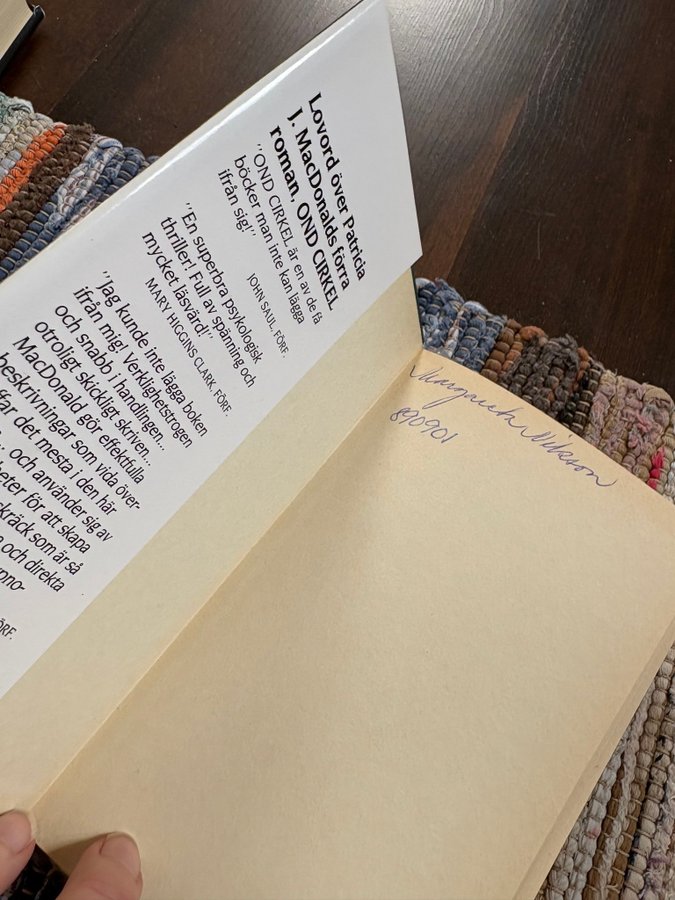 Lovord över Patricia
J. MacDonalds förra
roman, OND CIRKEL
"OND CIRKEL är en av de få
böcker man inte kan lägga
ifrån sig!"
JOHN SAUL, FÖRF.
"En superbra psykologisk
thriller! Full av spänning och
mycket läsvärd!"
MARY HIGGINS CLARK, FÖRF.
"Jag kunde inte lägga boken
ifrån mig! Verklighetstrogen
och snabb i handlingen...
otroligt skickligt skriven...
MacDonald gör effektfulla
beskrivningar som vida över-
ffar det mesta i den här
och använder sig av
heter för att skapa
kräck som är så
n och direkta
ypno-
ÖRF.
Margareta
890901